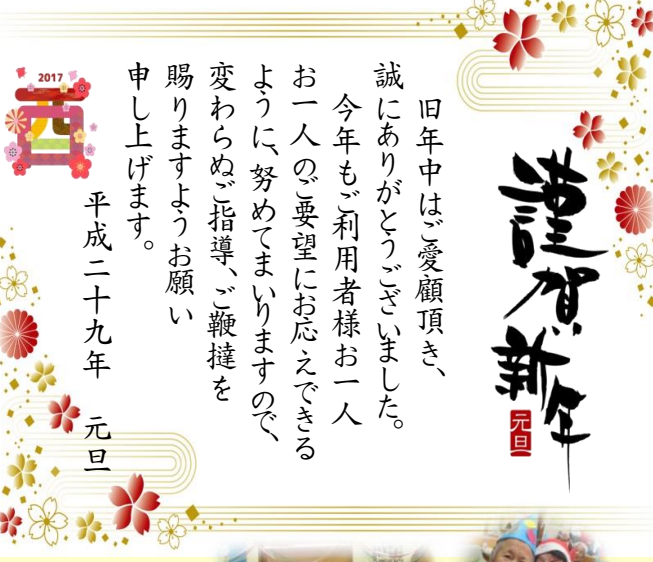 謹賀新年
元旦
旧年中はご愛顧頂き、
誠にありがとうございました。
今年もご利用者様お一人
お一人のご要望にお応えできる
ように、努めてまいりますので、
変わらぬご指導、ご鞭撻を
賜りますようお願い
申し上げます。
平成二十九年 元旦
2017
酉